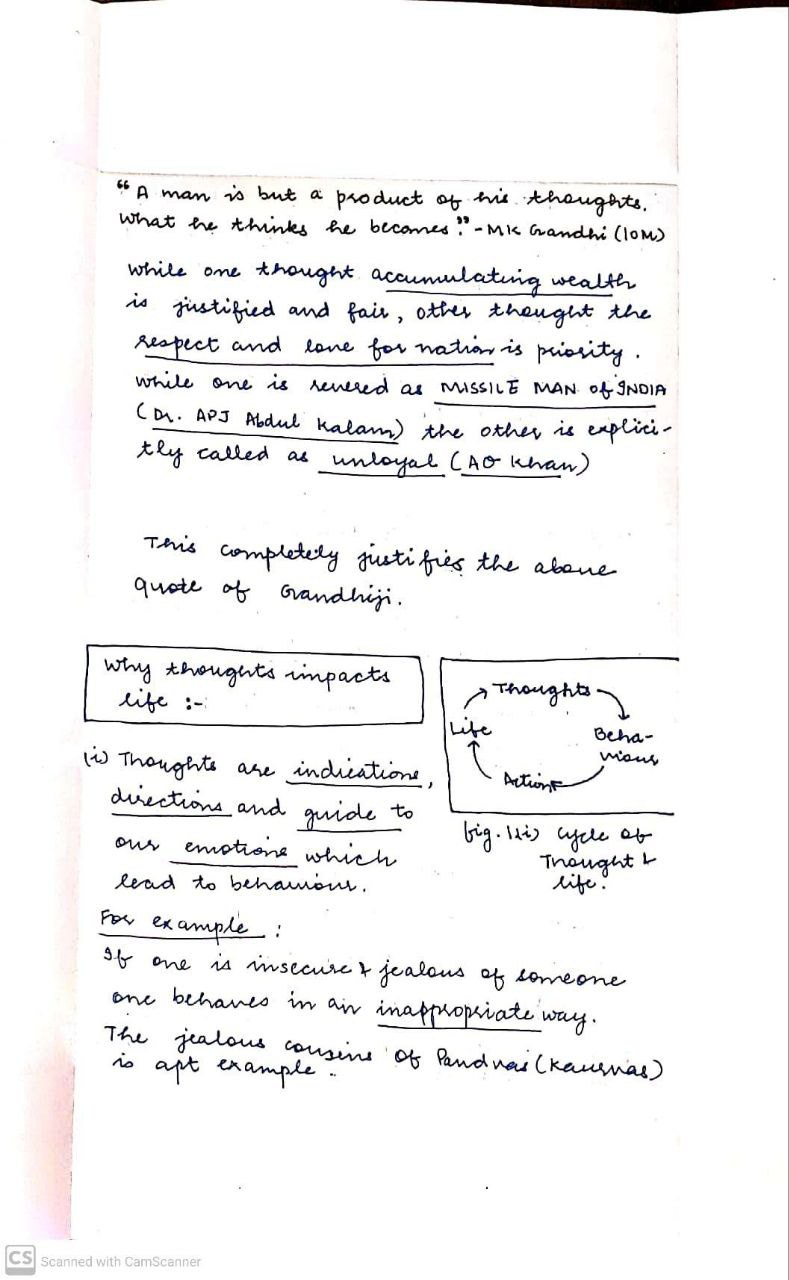 “A man is but a product of his thoughts.
What he thinks he becomes.” - MK Gandhi (10M)
While one thought accumulating wealth
is justified and fair, other thought the
respect and love for nation is priority.
While one is revered as MISSILE MAN of INDIA
(Dr. APJ Abdul Kalam) the other is explici-
tly called as unloyal (AQ Khan)
This completely justifies the above
quote of Gandhiji.
Why thoughts impacts
life :-
Thoughts
Life
Beha-
viour
Action
fig. 1(i) Cycle of
Thought &
life.
(i) Thoughts are indications,
directions and guide to
our emotions which
lead to behaviour.
For example :
If one is insecure & jealous of someone
one behaves in an inappropriate way.
The jealous cousins of Pandvas (Kaurvas)
is apt example.
CS Scanned with CamScanner